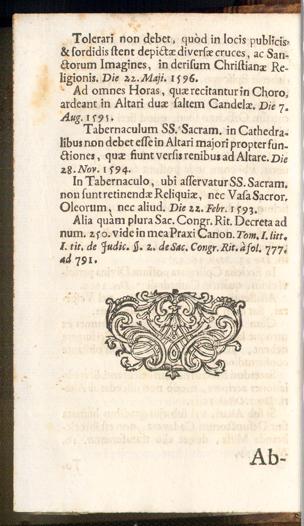 Tolerari non debet, quòd in locis publicis
& sordidis stent depictæ diversæ cruces, ac San-
ctorum Imagines, in derisum Christianæ Re-
ligionis. Die 22. Maji. 1596.
Ad omnes Horas, quæ recitantur in Choro,
ardeant in Altari duæ saltem Candelæ. Die 7.
Aug. 1595.
Tabernaculum SS. Sacram. in Cathedra-
libus non debet esse in Altari majori propter fun-
ctiones, quæ fiunt versis renibus ad Altare. Die
28. Nov. 1594.
In Tabernaculo, ubi asservatur SS. Sacram.
non sunt retinendæ Reliquiæ, nec Vasa Sacror.
Oleorum, nec aliud. Die 22. Febr. 1593.
Alia quàm plura Sac. Congr. Rit. Decreta ad
num. 250. vide in mea Praxi Canon. Tom. I. litt.
I. tit. de Judic. §. 2. de Sac. Congr. Rit. à fol. 777.
ad 791.
Ab-